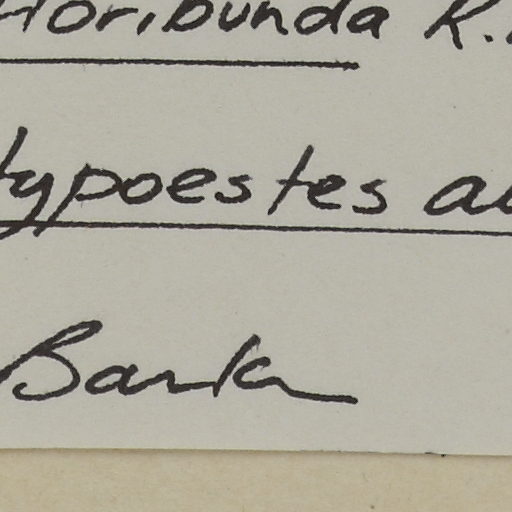 floribunda R.
typoestes
Barker